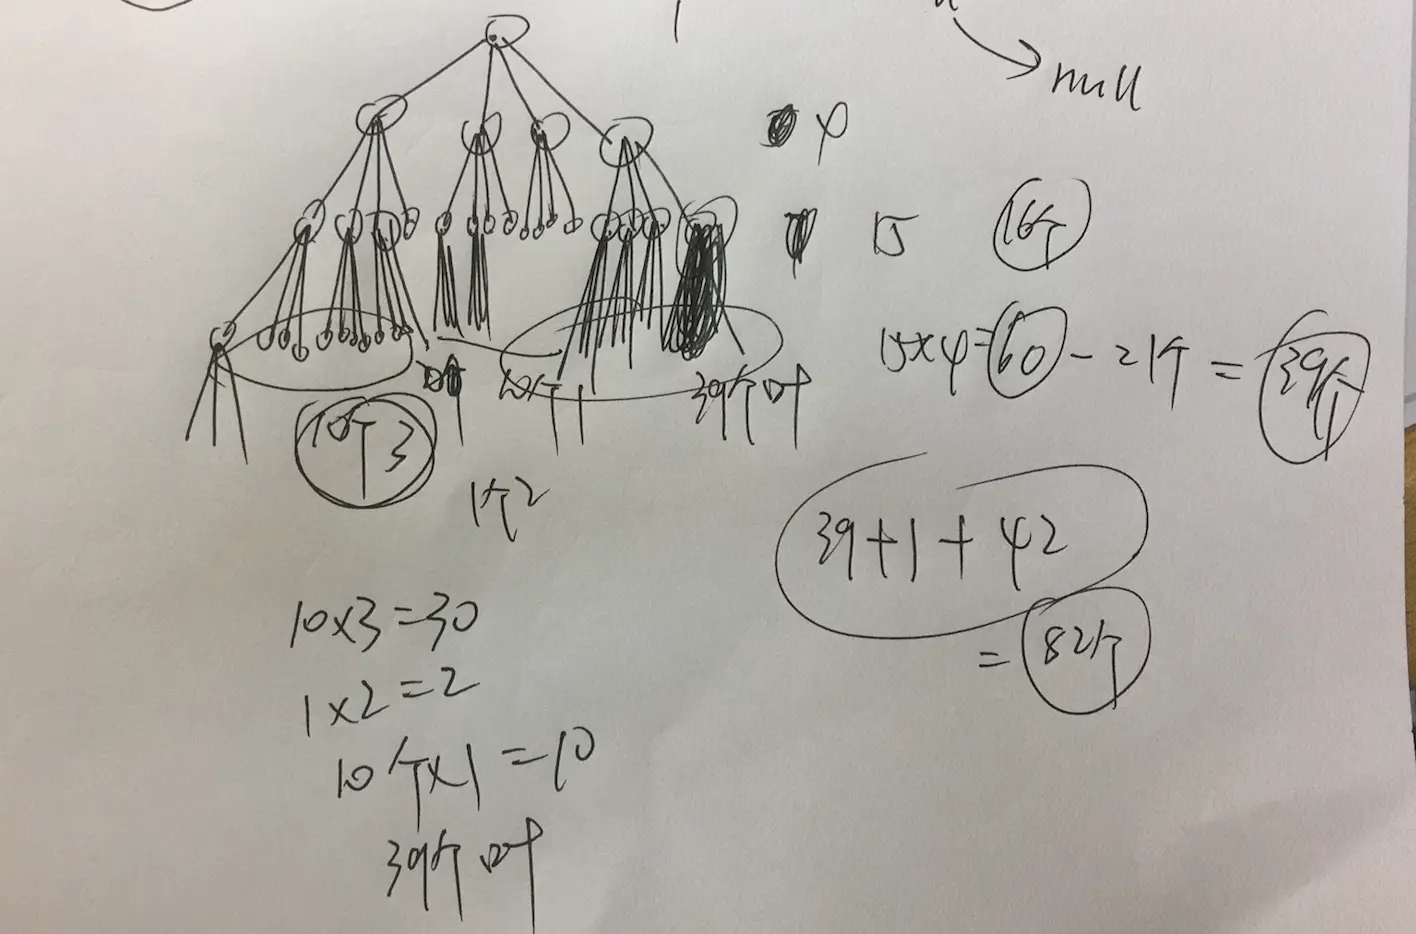 null
4
15 16个
15×4=60-21个=39个
10个1 39个叶
10个3
1个2
39+1+42
=82个
10×3=30
1×2=2
10个×1=10
39个叶